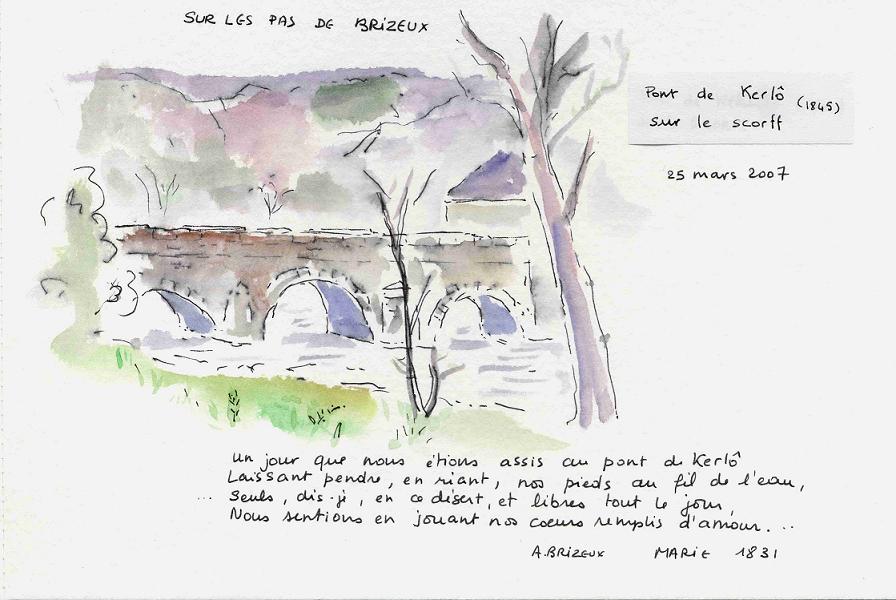 SUR LES PAS DE BRIZEUX
Pont de Kerlô (1845)
sur le scorff
25 mars 2007
Un jour que nous étions assis au pont de Kerlô
Laissant pendre, en riant, nos pieds au fil de l'eau,
... Seuls, dis-je, en ce désert, et libres tout le jour,
Nous sentions en jouant nos coeurs remplis d'amour...
A.BRIZEUX MARIE 1831